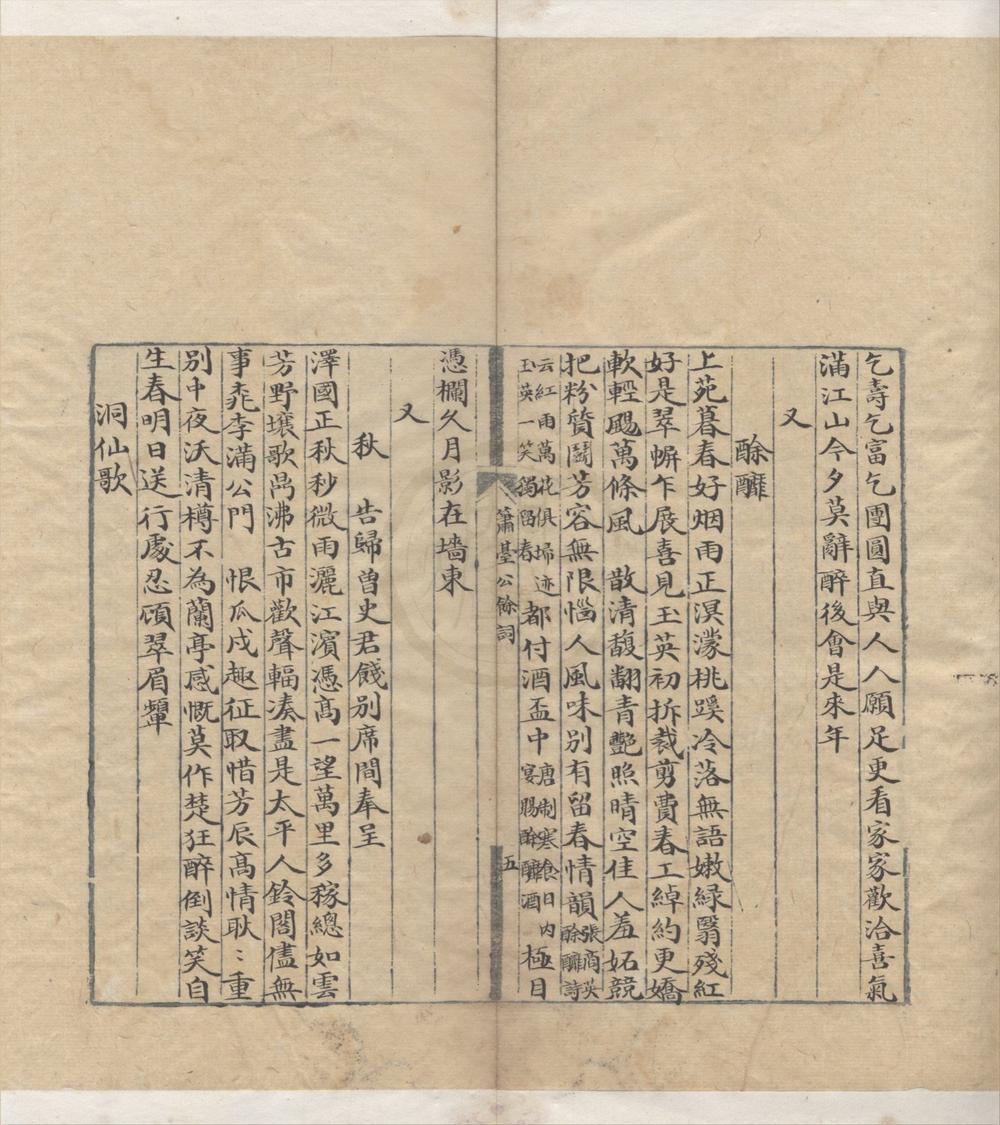 乞壽乞富乞團圓直與人人願足更看家家歡洽喜氣
滿江山今夕莫辭醉後會是來年
又
酴醾
上苑暮春好烟雨正溟濛桃蹊冷落無語嫩緑翳殘紅
好是翠帡乍展喜見玉英初拆裁剪費春工綽約更嬌
軟輕颺萬條風　散清馥翻青艷照晴空佳人羞妬競
把粉質鬬芳容無限惱人風味别有留春情韻張商英酴醾詩
云紅雨萬花俱掃迹玉英一笑獨留春都付酒盃中唐制寒食日内宴賜酴醾酒極目
簫臺公餘詞
五
憑欄久月影在墻東
又
秋　告歸曽史君餞别席間奉呈
澤國正秋秒微雨灑江濵憑髙一望萬里多稼總如雲
芳野壤歌咼沸古市歡聲輻凑盡是太平人鈴閤儘無
事桃李滿公門　恨瓜戍趣征取惜芳辰髙情耿〻重
别中夜沃清樽不為蘭亭感慨莫作楚狂醉倒談笑自
生春明日送行處忍頋翠眉顰
洞仙歌